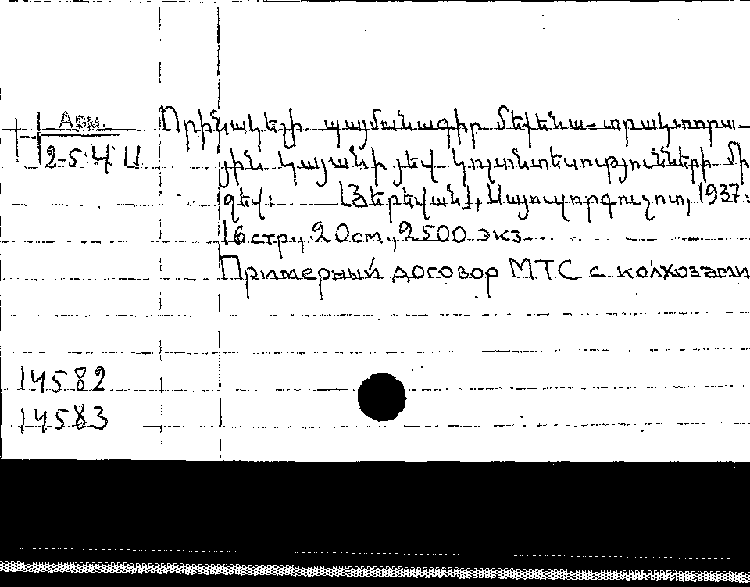 Арм.
2-54 Ա
Որինակելի պայմանագիր մեքենա-տրակտորա-
յին կայանի յեվ կոլտնտեսությունների մի-
ջեվ: [Յերեվան],
1937:
16 стр., 20 см., 2500 экз.
Примерный договор МТС с колхозами
14582
14583